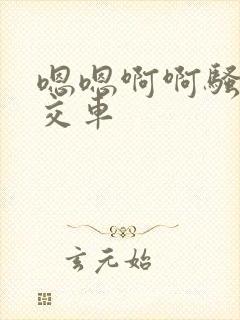 嗯嗯啊啊骚
交车
玄元始